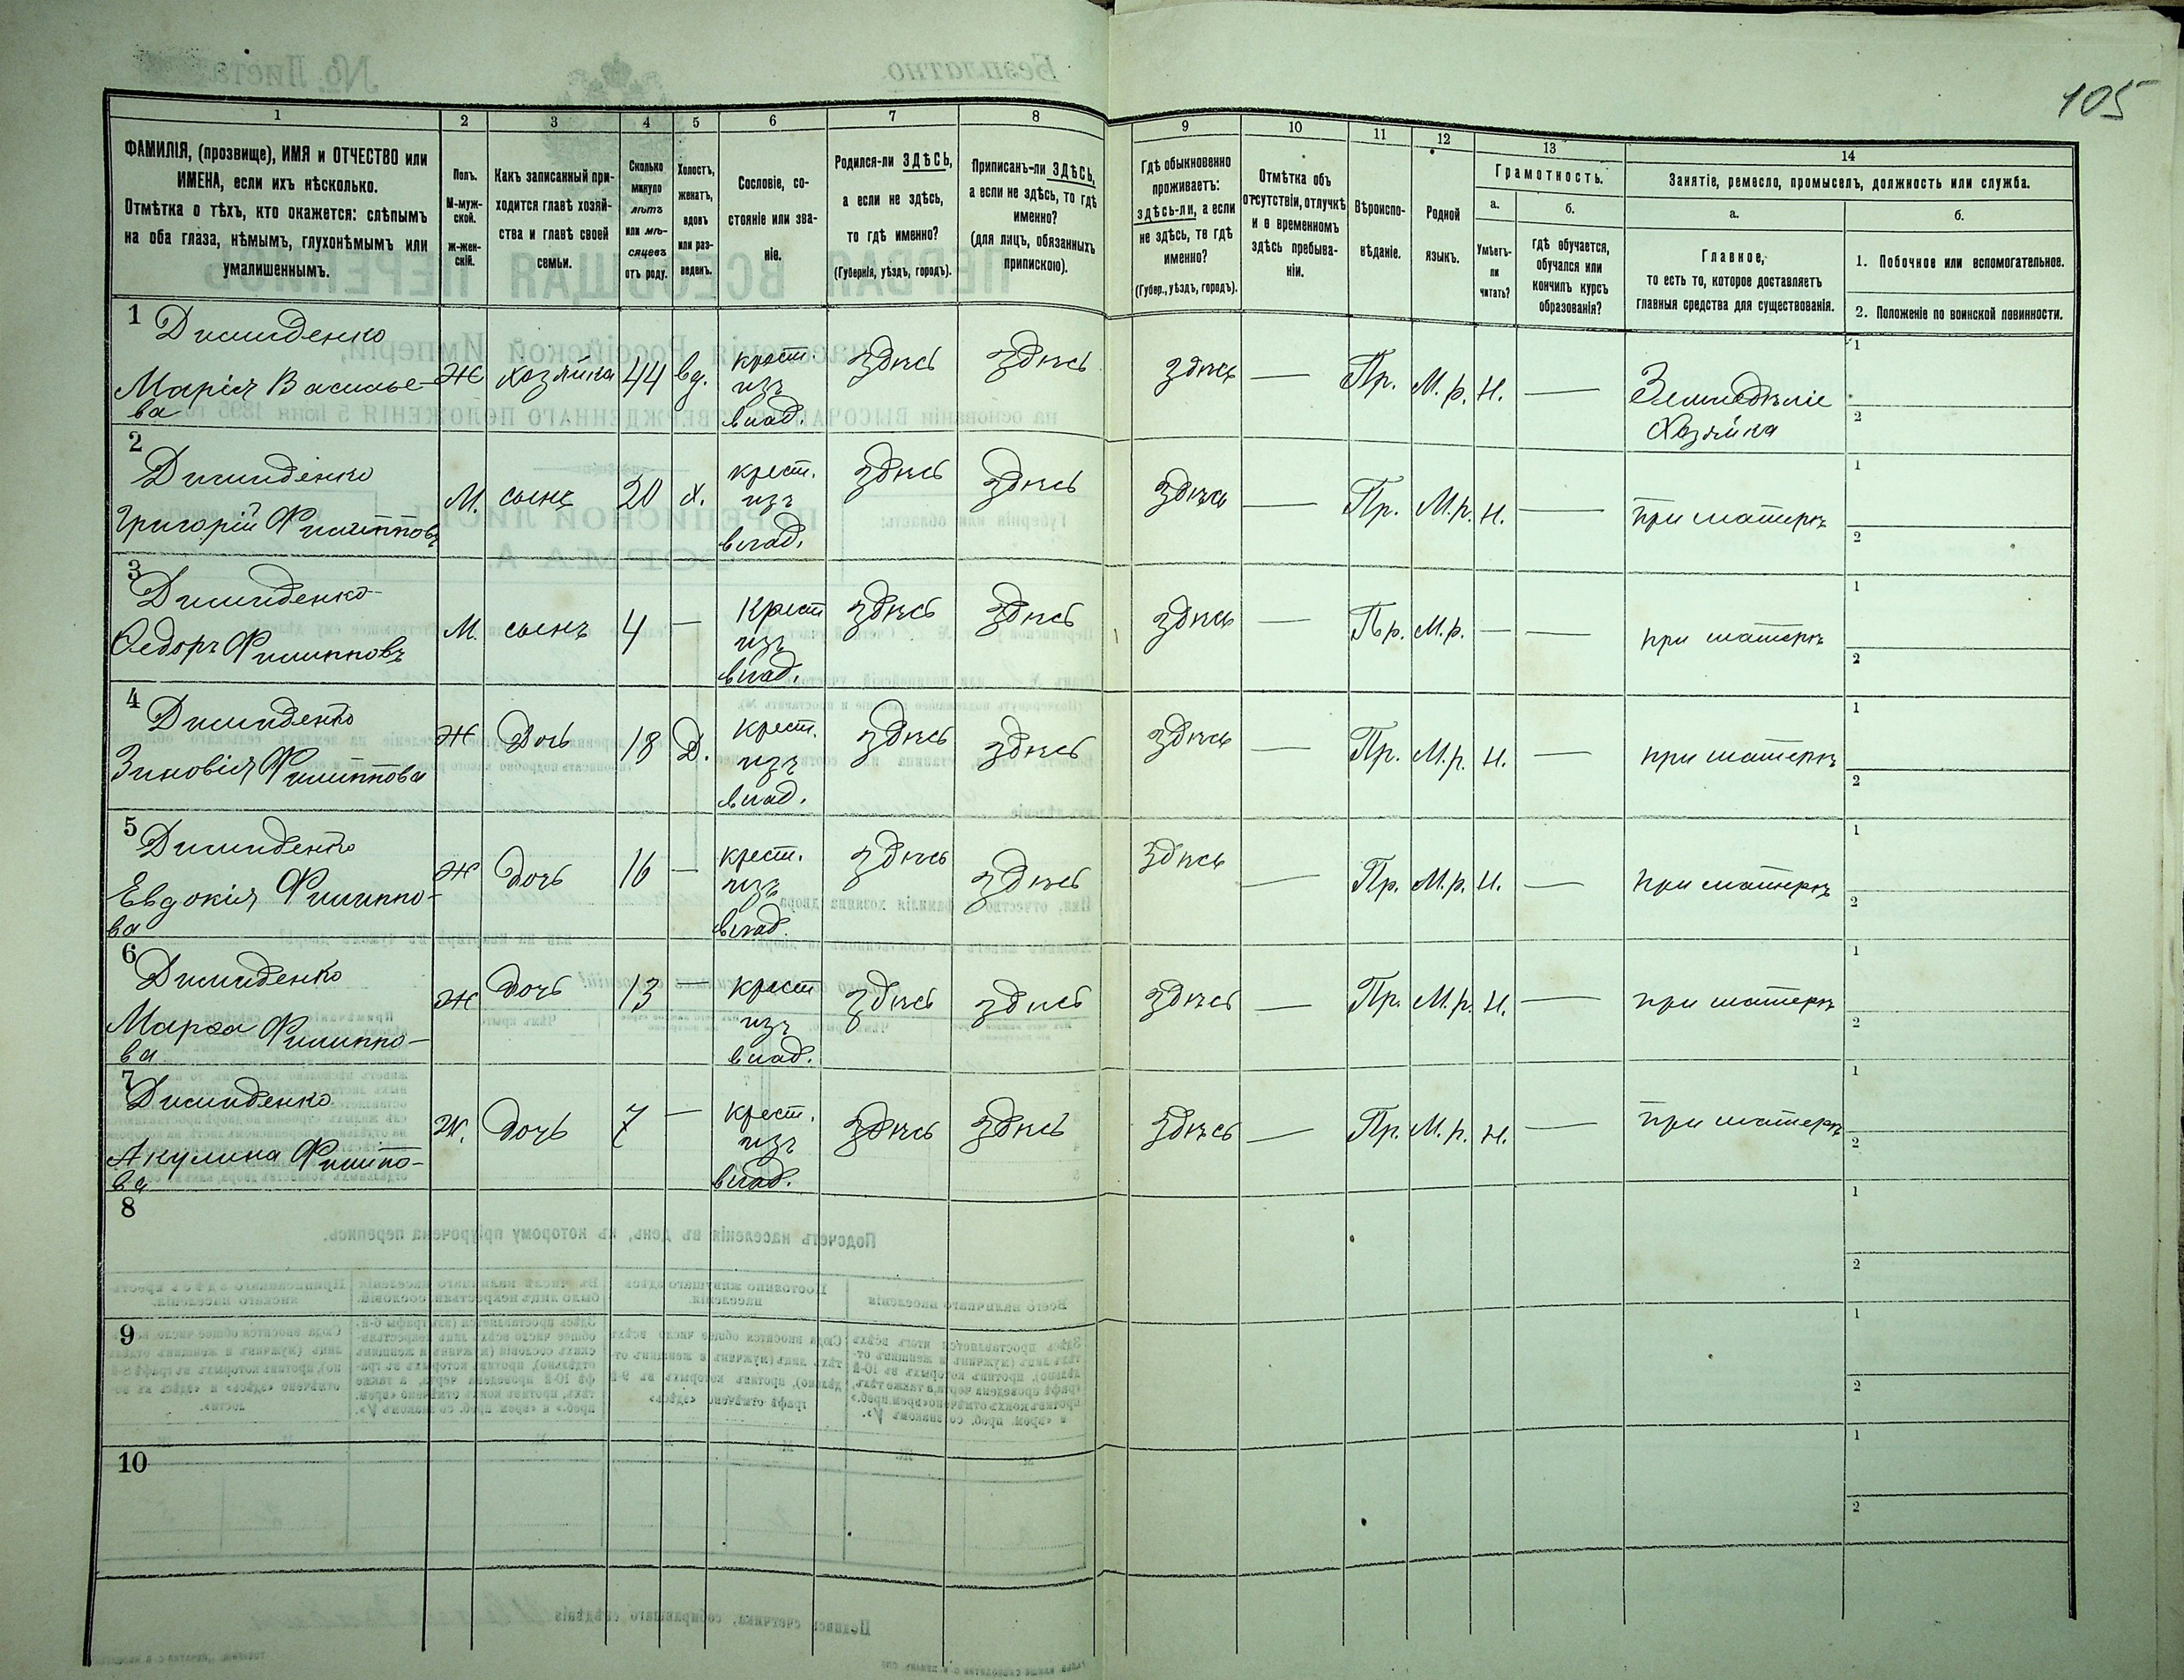 105
1
2
3
4
5
6
7
8
9
10
11
12
13
14
ФАМИЛІЯ, (прозвище), ИМЯ и ОТЧЕСТВО или
ИМЕНА, если ихъ нѣсколько.
Отмѣтка о тѣхъ, кто окажется: слѣпымъ
на оба глаза, нѣмымъ, глухонѣмымъ или
умалишеннымъ.
Полъ.
М-муж-
ской.
Ж-жен-
скій.
Какъ записанный при-
ходится главѣ хозяй-
ства и главѣ своей
семьи.
Сколько
минуло
лѣтъ
или мѣ-
сяцевъ
отъ роду.
Холостъ,
женатъ,
вдовъ
или раз-
веденъ.
Сословіе, со-
стояніе или зва-
ніе.
Родился-ли ЗДѢСЬ,
а если не здѣсь,
то гдѣ именно?
(Губернія, уѣздъ, городъ).
Приписанъ-ли ЗДѢСЬ,
а если не здѣсь, то гдѣ
именно?
(для лицъ, обязанныхъ
припискою).
Гдѣ обыкновенно
проживаетъ:
здѣсь-ли, а если
не здѣсь, то гдѣ
именно?
(Губер., уѣздъ, городъ).
Отмѣтка объ
отсутствіи, отлучкѣ
и о временномъ
здѣсь пребыва-
ніи.
Вѣроиспо-
вѣданіе.
Родной
языкъ.
Грамотность.
а.
Умѣетъ-
ли
читать?
б.
гдѣ обучается,
обучался или
кончилъ курсъ
образованія?
Занятіе, ремесло, промыселъ, должность или служба.
а.
Главное,
то есть то, которое доставляетъ
главныя средства для существованія.
б.
1. Побочное или вспомогательное.
2. Положеніе по воинской повинности.
1 Димиденко
Марія Василье-
ва
Ж Хозяйка 44 вд. крест.
изъ
влад.
здѣсь здѣсь здѣсь — Пр. М.р. Н. — Земледѣліе
Хозяйка
1
2
2 Димиденко
Григорій Филипповъ
М. сынъ 20 х. крест.
изъ
влад.
здѣсь здѣсь здѣсь — Пр. М.р. Н. — при матерѣ
1
2
3 Димиденко
Ѳедоръ Филипповъ
М. сынъ 4 — Крест
изъ
влад.
здѣсь здѣсь здѣсь — Пр. М.р. — — при матерѣ
1
2
4 Димиденко
Зиновія Филиппова
Ж Дочь 18 Д. крест.
изъ
влад.
здѣсь здѣсь здѣсь — Пр. М.р. Н. — при матерѣ
1
2
5 Димиденко
Евдокія Филиппо-
ва
Ж дочь 16 — крест.
изъ
влад.
здѣсь здѣсь здѣсь — Пр. М.р. Н. — при матерѣ
1
2
6 Димиденко
Марѳа Филиппо-
ва
Ж дочь 13 — крест
изъ
влад.
здѣсь здѣсь здѣсь — Пр. М.р. Н. — при матерѣ
1
2
7 Димиденко
Акулина Филипо-
ва
Ж. дочь 7 — крест.
изъ
влад.
здѣсь здѣсь здѣсь — Пр. М.р. Н. — при матерѣ
1
2
8
1
2
9
1
2
10
1
2